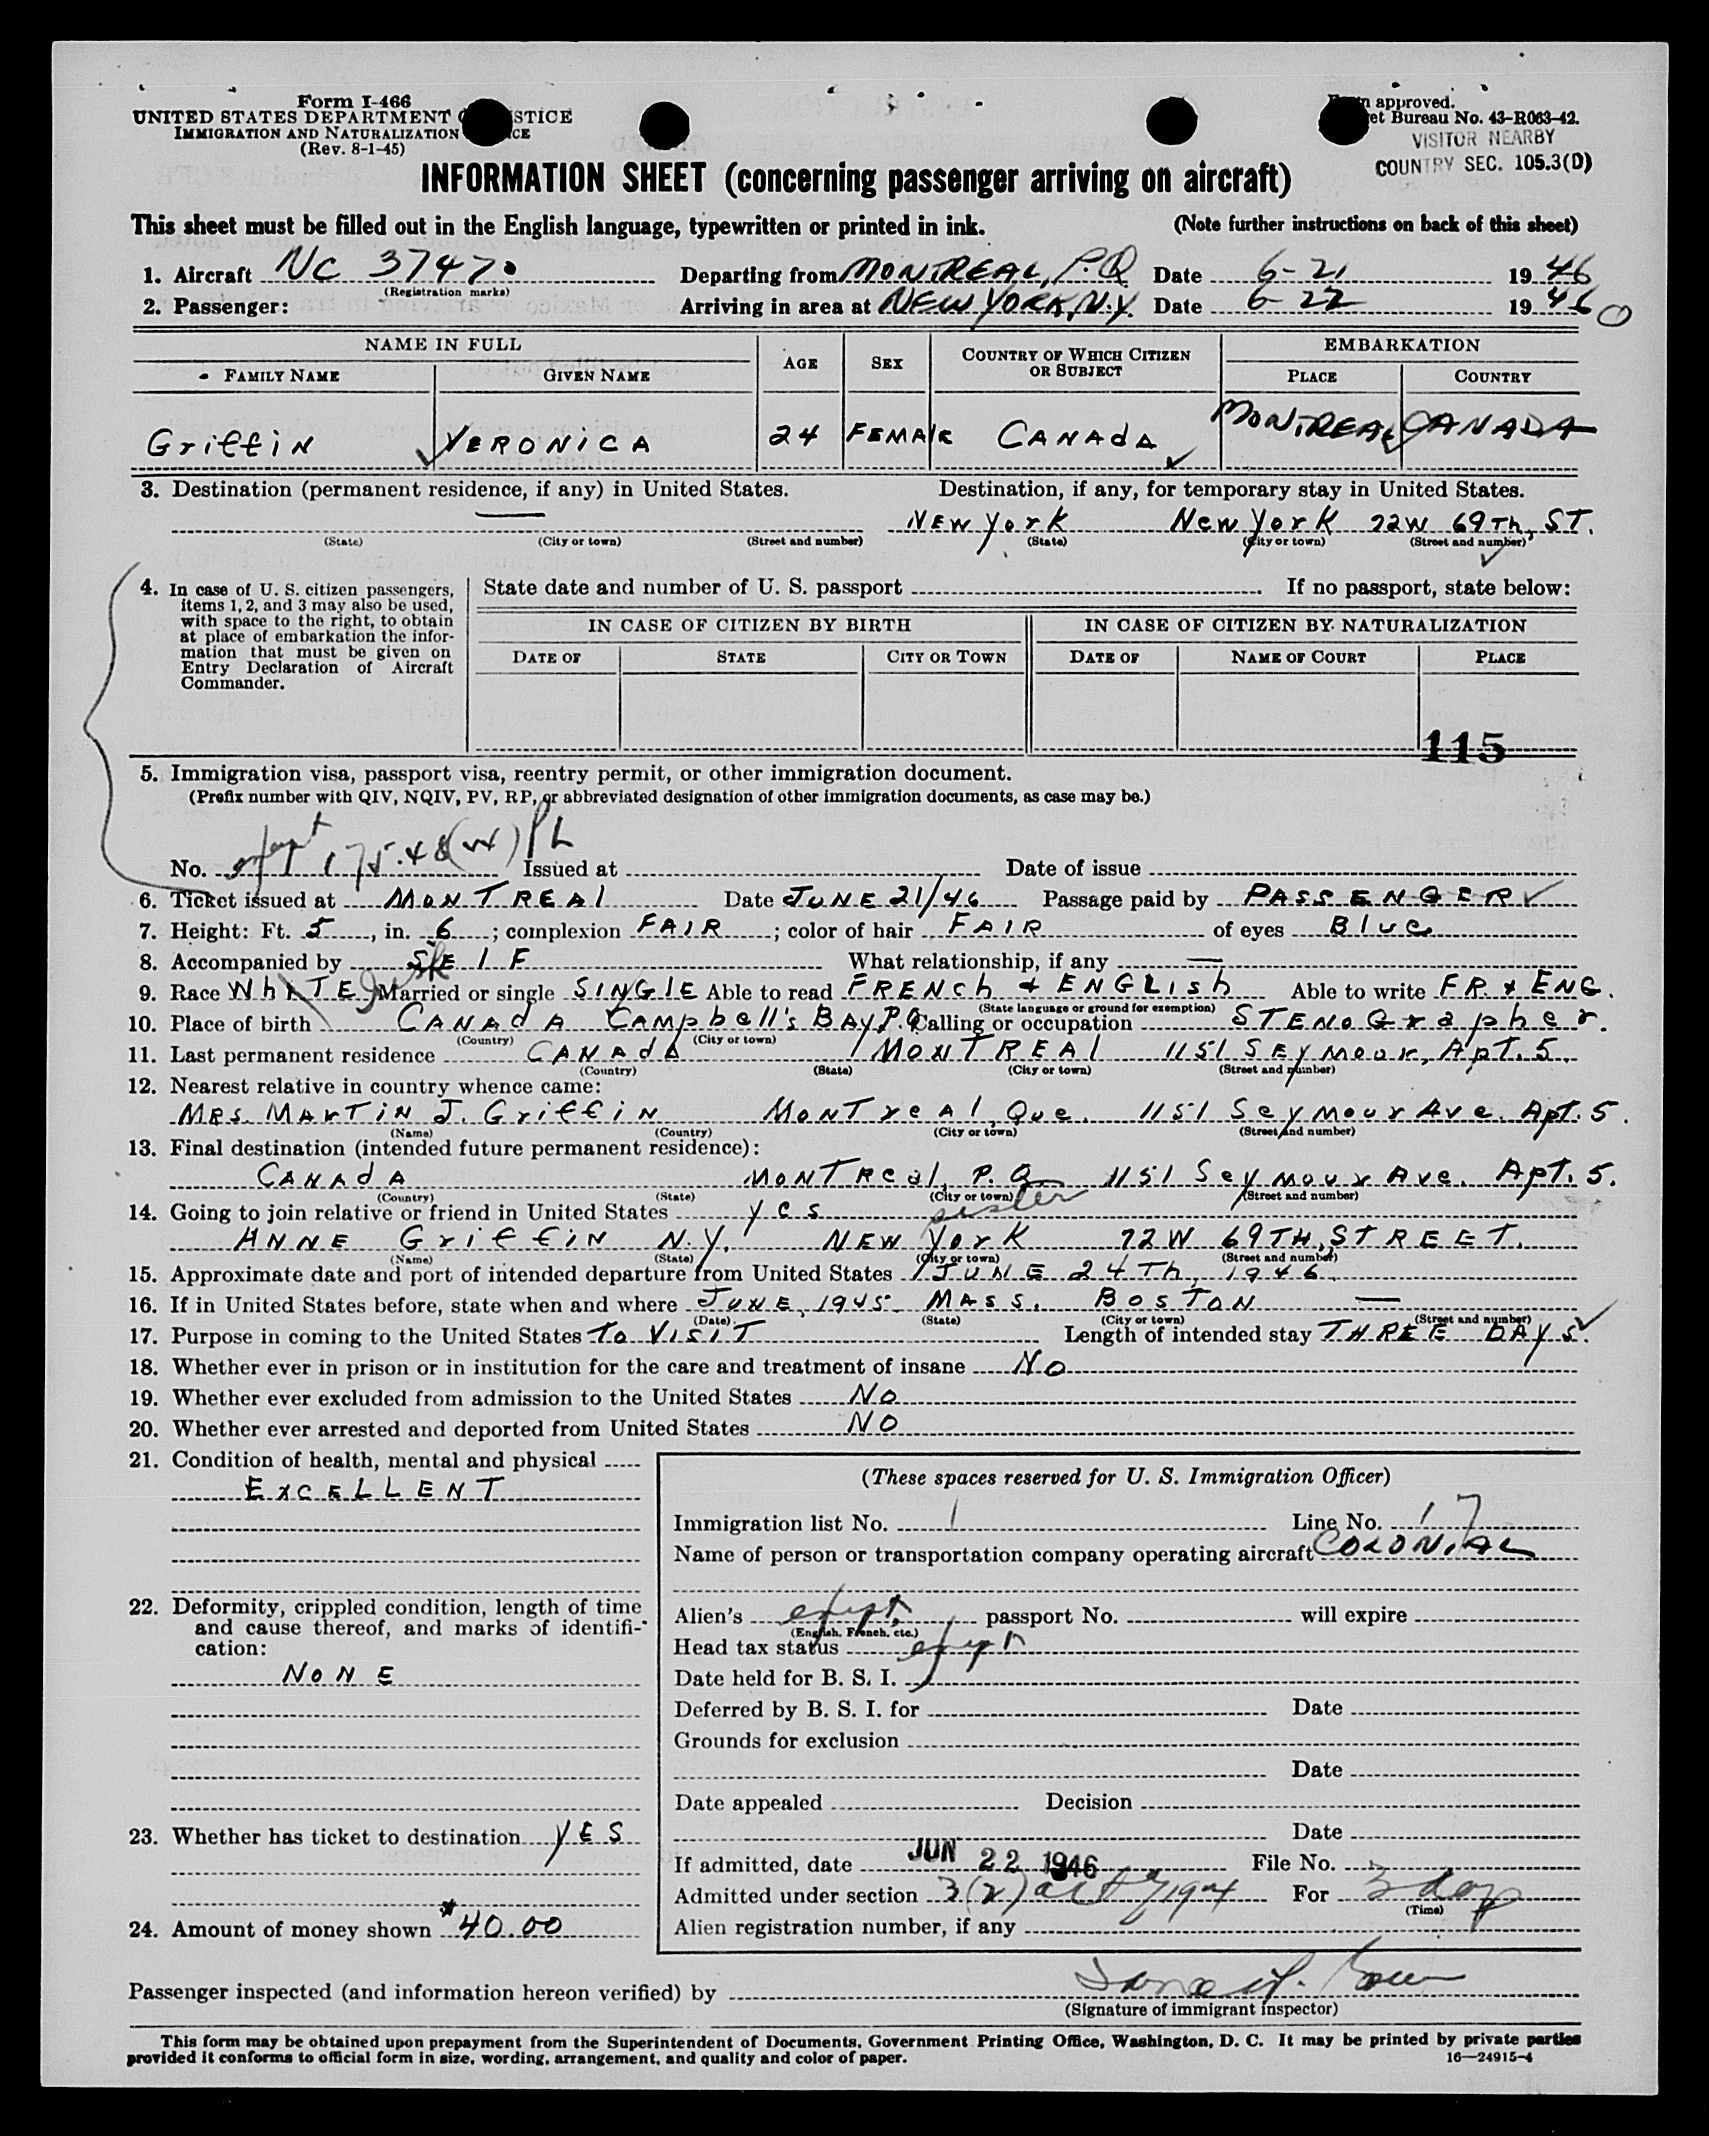 Form I-466
UNITED STATES DEPARTMENT STICE
IMMIGRATION AND NATURALIZATION CE
(Rev. 8-1-45)
approved.
et Bureau No. 43-R063-42.
VISITOR NEARBY
COUNTRY SEC. 105.3(D)
INFORMATION SHEET (concerning passenger arriving on aircraft)
This sheet must be filled out in the English language, typewritten or printed in ink. (Note further instructions on back of this sheet)
1. Aircraft NC 37470 Departing from MONTREAL, P.Q Date 6-21 1946
(Registration marks)
2. Passenger: Arriving in area at NEW YORK, N.Y. Date 6-22 1946 O
NAME IN FULL AGE SEX COUNTRY OF WHICH CITIZEN OR SUBJECT EMBARKATION
FAMILY NAME GIVEN NAME PLACE COUNTRY
Griffin VERONICA 24 FEMALE CANADA MONTREAL CANADA
3. Destination (permanent residence, if any) in United States. Destination, if any, for temporary stay in United States.
— New York New York 72W 69Th, ST.
(State) (City or town) (Street and number) (State) (City or town) (Street and number)
4. In case of U. S. citizen passengers, items 1, 2, and 3 may also be used, with space to the right, to obtain at place of embarkation the information that must be given on Entry Declaration of Aircraft Commander.
State date and number of U. S. passport If no passport, state below:
IN CASE OF CITIZEN BY BIRTH IN CASE OF CITIZEN BY NATURALIZATION
DATE OF STATE CITY OR TOWN DATE OF NAME OF COURT PLACE
115
5. Immigration visa, passport visa, reentry permit, or other immigration document.
(Prefix number with QIV, NQIV, PV, RP, or abbreviated designation of other immigration documents, as case may be.)
No. 175.48 Issued at Date of issue
6. Ticket issued at MONTREAL Date JUNE 21/46 Passage paid by PASSENGER
7. Height: Ft. 5, in. 6; complexion FAIR; color of hair FAIR of eyes Blue
8. Accompanied by SELF What relationship, if any —
9. Race WhiTE Married or single SINGLE Able to read FRENCh & ENGLIsh Able to write FR & ENG.
(State language or ground for exemption)
10. Place of birth CANADA Campbell's BAY, P.Q. Calling or occupation STENOGrapher.
(Country) (City or town)
11. Last permanent residence CANADA MONTREAL 1151 SEYMOUR, APT. 5.
(Country) (State) (City or town) (Street and number)
12. Nearest relative in country whence came:
MRS. MARTIN J. Griffin MONTreAl, Que. 1151 Seymour Ave. Apt. 5.
(Name) (Country) (City or town) (Street and number)
13. Final destination (intended future permanent residence):
CANADA MONTReal, P.Q 1151 Seymour Ave. ApT. 5.
(Country) (State) (City or town) (Street and number)
14. Going to join relative or friend in United States yes sister
ANNE Griffin N.Y. NEW York 72W 69TH, STREET.
(Name) (State) (City or town) (Street and number)
15. Approximate date and port of intended departure from United States JUNE 24Th, 1946.
16. If in United States before, state when and where JUNE, 1945 MASS. BOSTON —
(Date) (State) (City or town) (Street and number)
17. Purpose in coming to the United States To VISIT Length of intended stay THREE DAYS.
18. Whether ever in prison or in institution for the care and treatment of insane NO
19. Whether ever excluded from admission to the United States NO
20. Whether ever arrested and deported from United States NO
21. Condition of health, mental and physical
EXCELLENT
22. Deformity, crippled condition, length of time and cause thereof, and marks of identification:
NONE
23. Whether has ticket to destination YES
24. Amount of money shown $40.00
(These spaces reserved for U. S. Immigration Officer)
Immigration list No. 1 Line No. 17
Name of person or transportation company operating aircraft COLONIAL
Alien's exempt passport No. will expire
(English, French, etc.)
Head tax status exempt
Date held for B. S. I.
Deferred by B. S. I. for Date
Grounds for exclusion
Date
Date appealed Decision
Date
If admitted, date JUN 22 1946 File No.
Admitted under section 3(2) act of 1924 For 3 days
(Time)
Alien registration number, if any
Passenger inspected (and information hereon verified) by
(Signature of immigrant inspector)
This form may be obtained upon prepayment from the Superintendent of Documents, Government Printing Office, Washington, D. C. It may be printed by private parties
provided it conforms to official form in size, wording, arrangement, and quality and color of paper. 16—24915-4